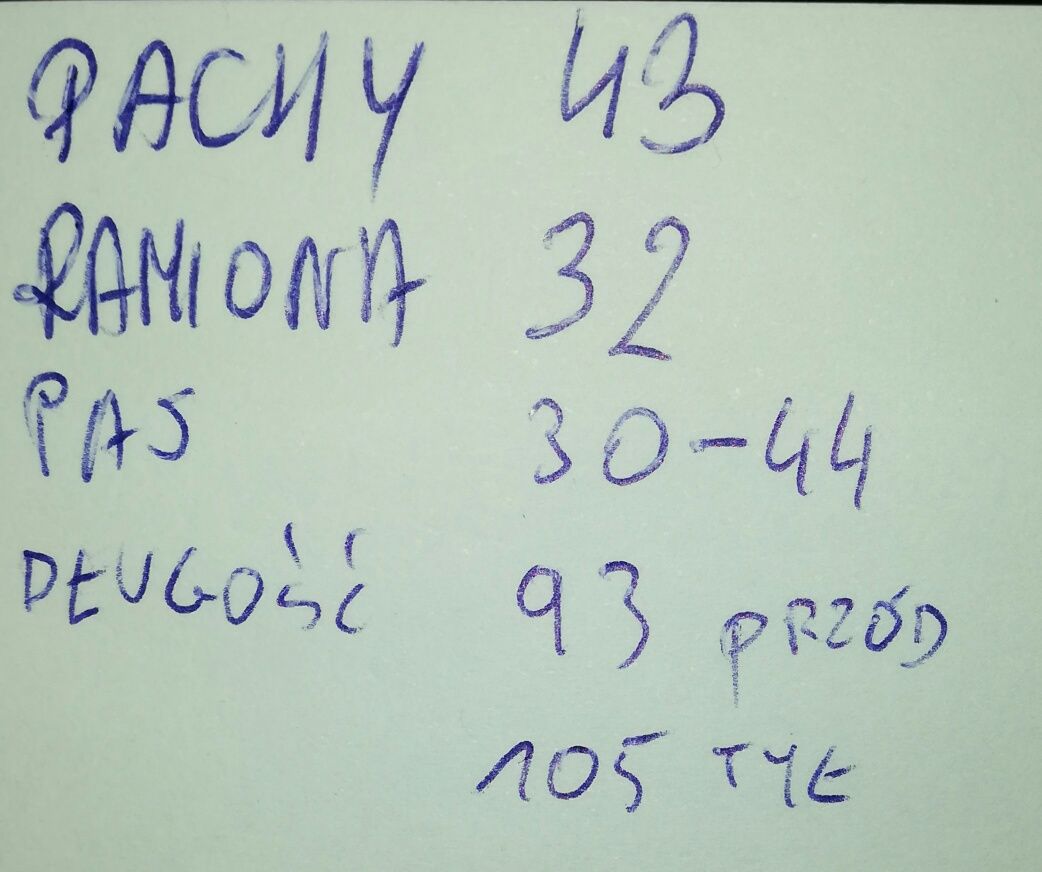 PACHY 43
RAMIONA 32
PAS 30-44
DŁUGOŚĆ 93 PRZÓD
105 TYŁ